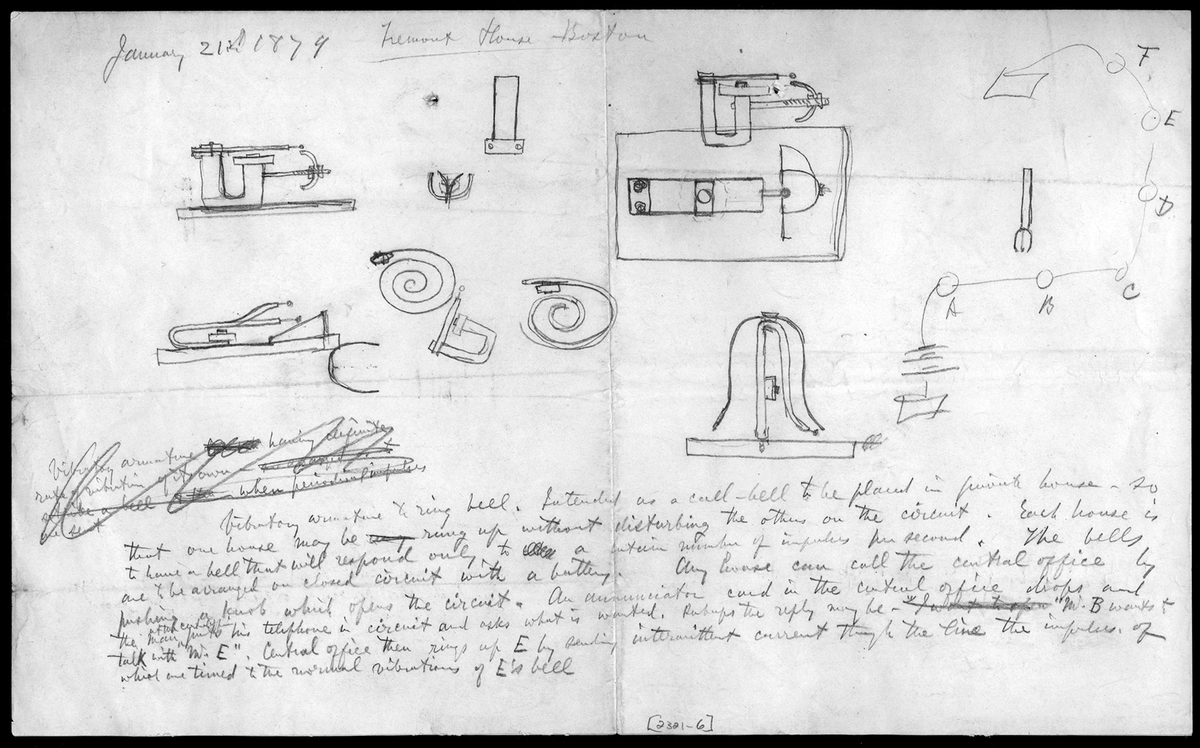 January 21st 1879 Tremont House Boston
F
E
D
A B C
Vibratory armature having definite
rate of vibration of its own
when periodical impulses
Vibratory armature to ring bell. Intended as a call-bell to be placed in private house - so
that one house may be rung up without disturbing the others on the circuit. Each house is
to have a bell that will respond only to a certain number of impulses per second. The bells
are to be arranged on closed circuit with a battery. Any house can call the central office by
pushing a knob which opens the circuit. An annunciator card in the central office drops and
the man puts his telephone in circuit and asks what is wanted. Perhaps the reply may be - "Mr. B wants to
talk with "Mr. E". Central office then rings up E by sending intermittent current through the line the impulses of
which are timed to the normal vibrations of E's bell
[2321-6]